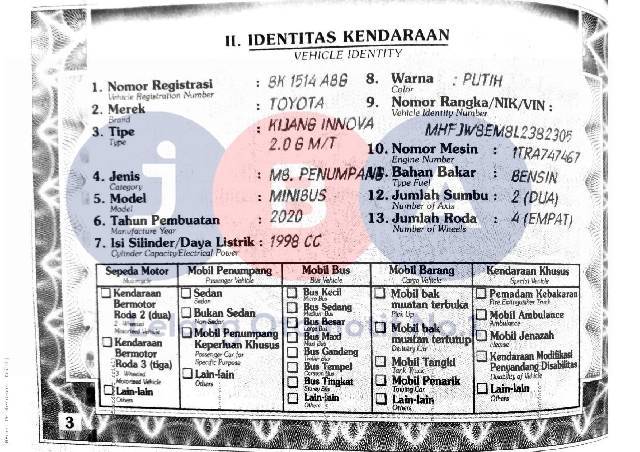 II. IDENTITAS KENDARAAN
VEHICLE IDENTITY
1. Nomor Registrasi : BK 1514 ABG
Vehicle Registration Number
2. Merek : TOYOTA
Brand
3. Tipe : KIJANG INNOVA
Type 2.0 G M/T
4. Jenis : MB. PENUMPANG
Category
5. Model : MINIBUS
Model
6. Tahun Pembuatan : 2020
Manufacture Year
7. Isi Silinder/Daya Listrik : 1998 CC
Cylinder Capacity/Electrical Power
8. Warna : PUTIH
Color
9. Nomor Rangka/NIK/VIN :
Vehicle Identity Number
MHFJW8EM8L2382305
10. Nomor Mesin : 1TRA747467
Engine Number
11. Bahan Bakar : BENSIN
Type Fuel
12. Jumlah Sumbu : 2 (DUA)
Number of Axis
13. Jumlah Roda : 4 (EMPAT)
Number of Wheels
JBA
Sepeda Motor
Motorcycle
Kendaraan
Bermotor
Roda 2 (dua)
2 Wheeled
Motorized Vehicle
Kendaraan
Bermotor
Roda 3 (tiga)
3 Wheeled
Motorized Vehicle
Lain-lain
Others
Mobil Penumpang
Passenger Vehicle
Sedan
Sedan
Bukan Sedan
Non Sedan
Mobil Penumpang
Keperluan Khusus
Passenger Car for
Specific Purpose
Lain-lain
Others
Mobil Bus
Bus Vehicle
Bus Kecil
Micro Bus
Bus Sedang
Medium Bus
Bus Besar
Large Bus
Bus Maxi
Maxi Bus
Bus Gandeng
Bus Tempel
Bus Tingkat
Lain-lain
Others
Mobil Barang
Cargo Vehicle
Mobil bak
muatan terbuka
Pick Up
Mobil bak
muatan tertutup
Delivery Car
Mobil Tangki
Tank Truck
Mobil Penarik
Towing Car
Lain-lain
Others
Kendaraan Khusus
Special Vehicle
Pemadam Kebakaran
Fire Extinguisher Truck
Mobil Ambulance
Ambulance
Mobil Jenazah
Hearse
Kendaraan Modifikasi
Penyandang Disabilitas
Disability of Vehicle
Lain-lain
Others
3